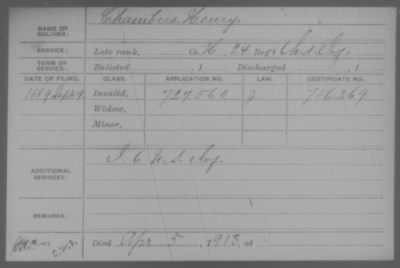 NAME OF SOLDIER: Chambers, Henry.
SERVICE: Late rank, Co. H, 24 Reg't Ind Inf.
TERM OF SERVICE: Enlisted , 1 Discharged , 1
DATE OF FILING. CLASS. APPLICATION NO. LAW. CERTIFICATE NO.
1889 Sept 9 Invalid, 727.560 J 756.269
Widow,
Minor,
ADDITIONAL SERVICES: U.S. Inf.
REMARKS:
Died Apr 5, 1913, at